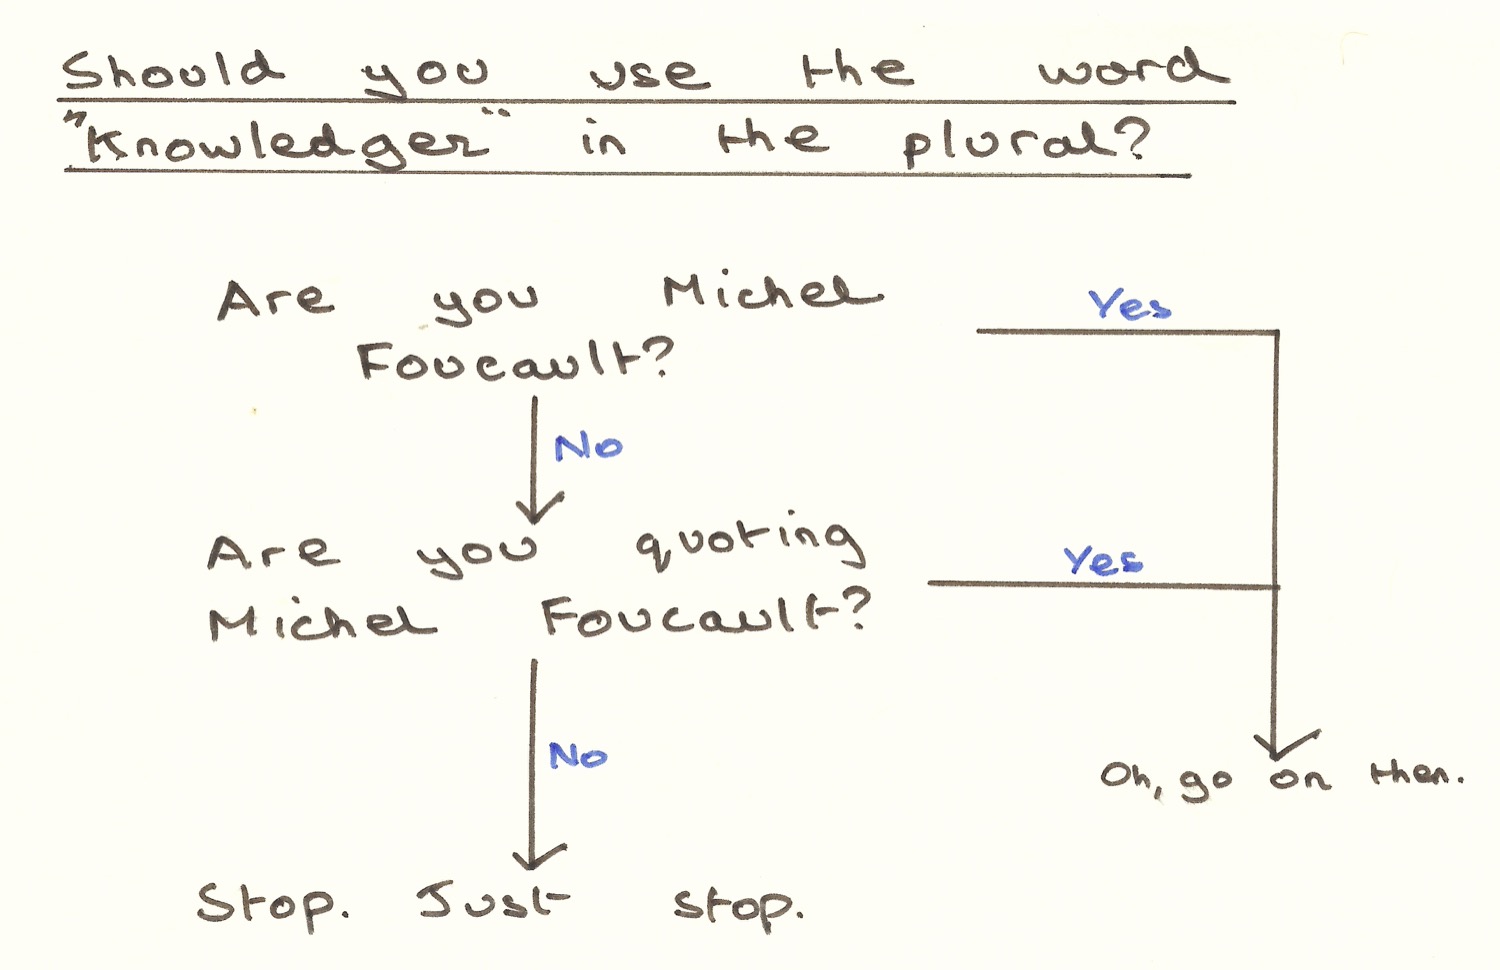 Should you use the word
"Knowledger" in the plural?
Are you Michel
Foucault?
Yes
No
Are you quoting
Michel Foucault?
Yes
No
Oh, go on then.
Stop. Just stop.